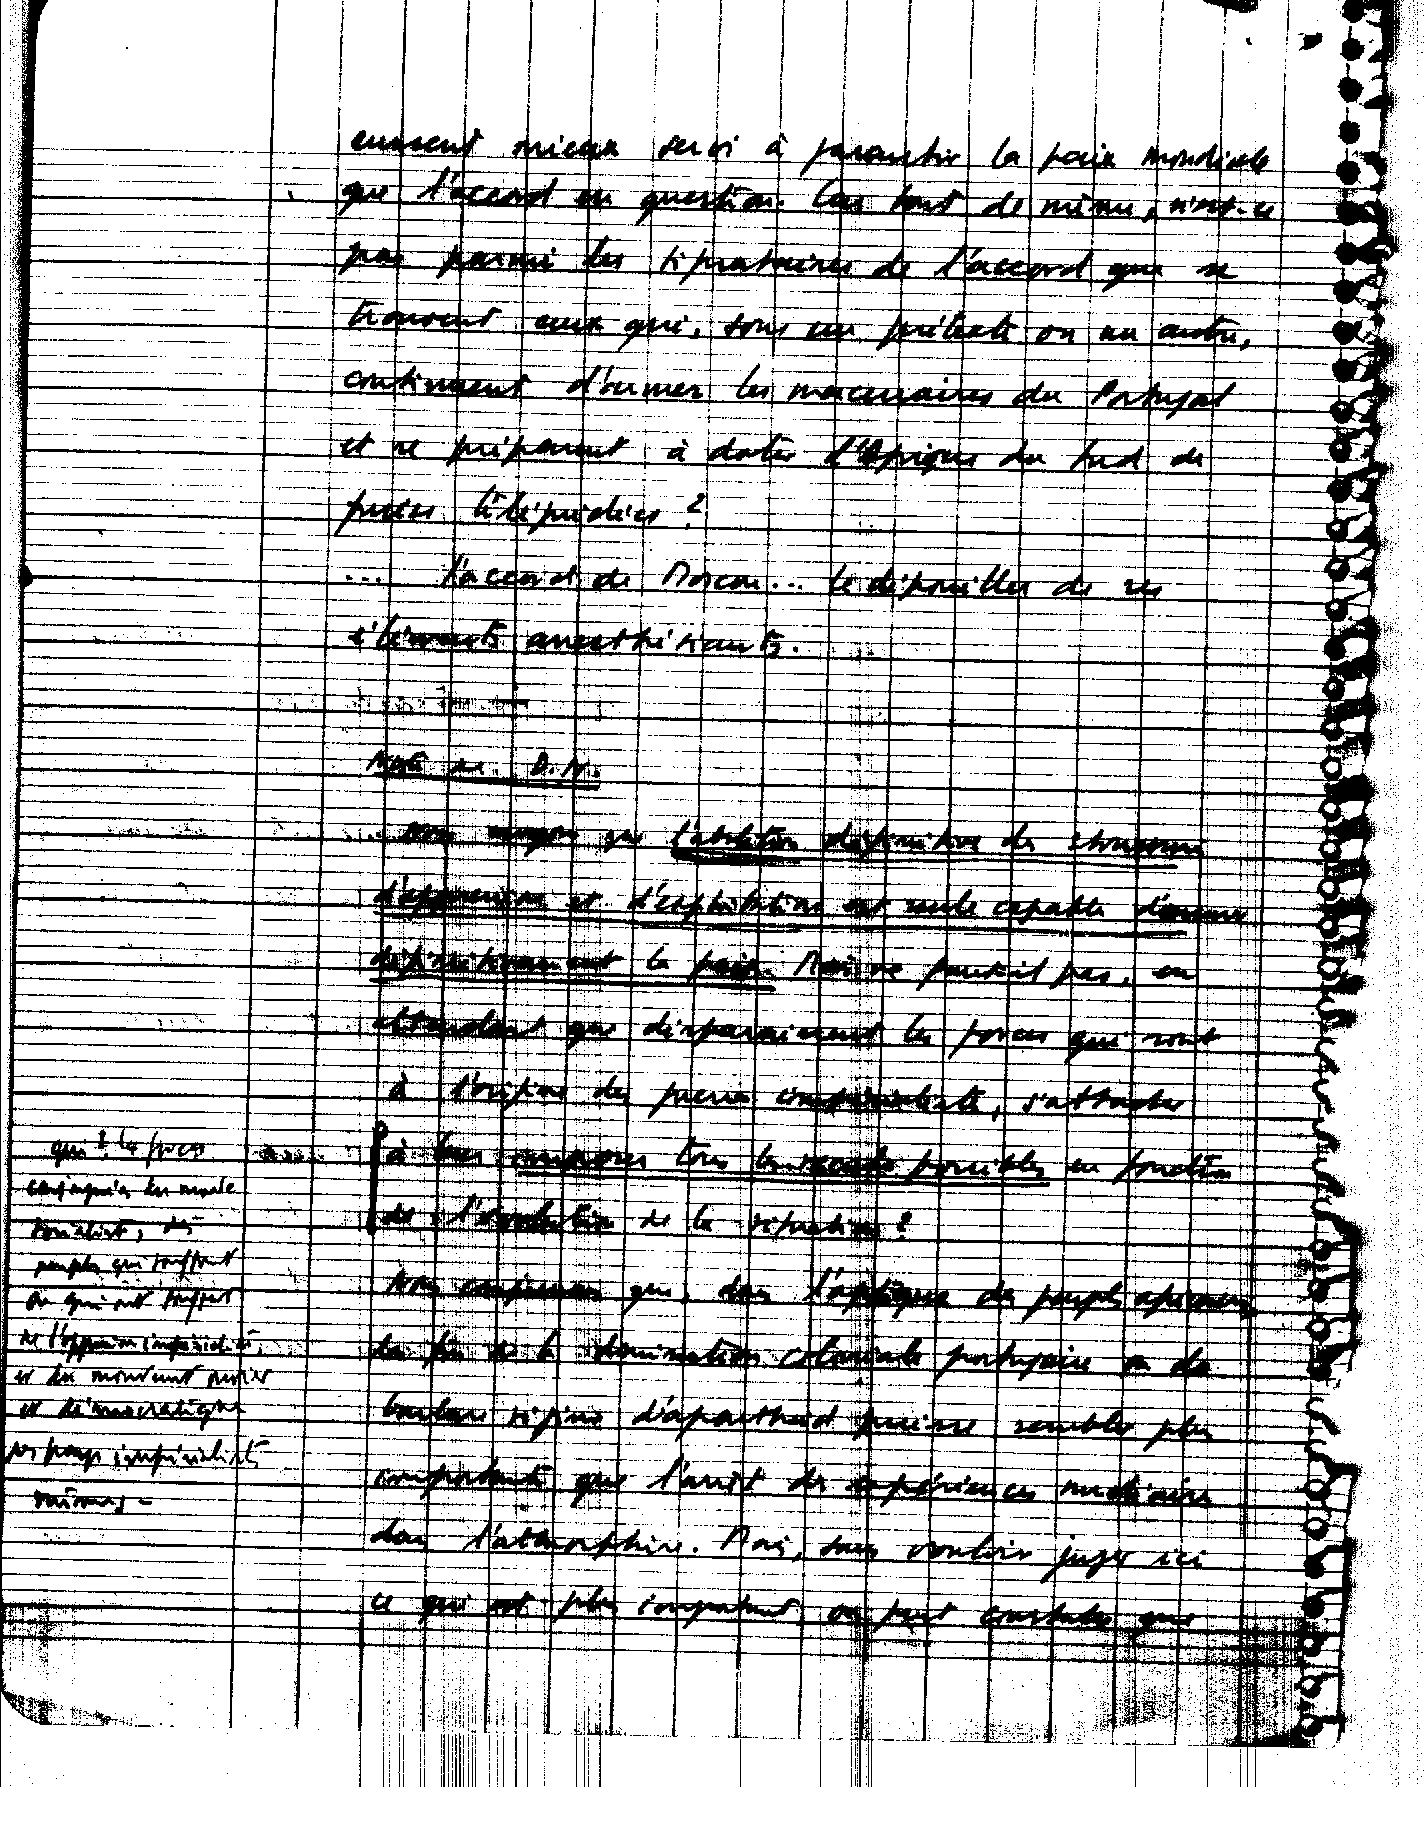 eussent mieux servi à garantir la paix mondiale
que l'accord en question. Car tout de même, n'est-ce
pas parmi les signataires de l'accord que se
trouvent ceux qui, sous un prétexte ou un autre,
continuent d'armer les mercenaires du Portugal
et se préparent à doter l'Afrique du Sud de
fusées téléguidées ?
... l'accord de Moscou... le dépouiller de ses
éléments anesthésiants.
Note de D.N.
que l'abolition définitive des structures
d'oppression et d'exploitation est seule capable d'assurer
définitivement la paix. Mais ne faudrait pas, en
attendant que disparaissent les forces qui sont
à l'origine des guerres impérialistes, s'attacher
à leur imposer tous les reculs possibles en fonction
de l'évolution de la situation ?
Nous comprenons que, dans l'optique des peuples africains,
la fin de la domination coloniale portugaise ou du
barbare régime d'apartheid puisse sembler plus
importante que l'arrêt des expériences nucléaires
dans l'atmosphère. Mais, sans vouloir juger ici
ce qui est plus important, on peut constater que
qui ? les forces
conjuguées du monde
socialiste, des
peuples qui souffrent
ou qui ont souffert
de l'oppression impérialiste,
et du mouvement ouvrier
et démocratique
des pays impérialistes
eux-mêmes.